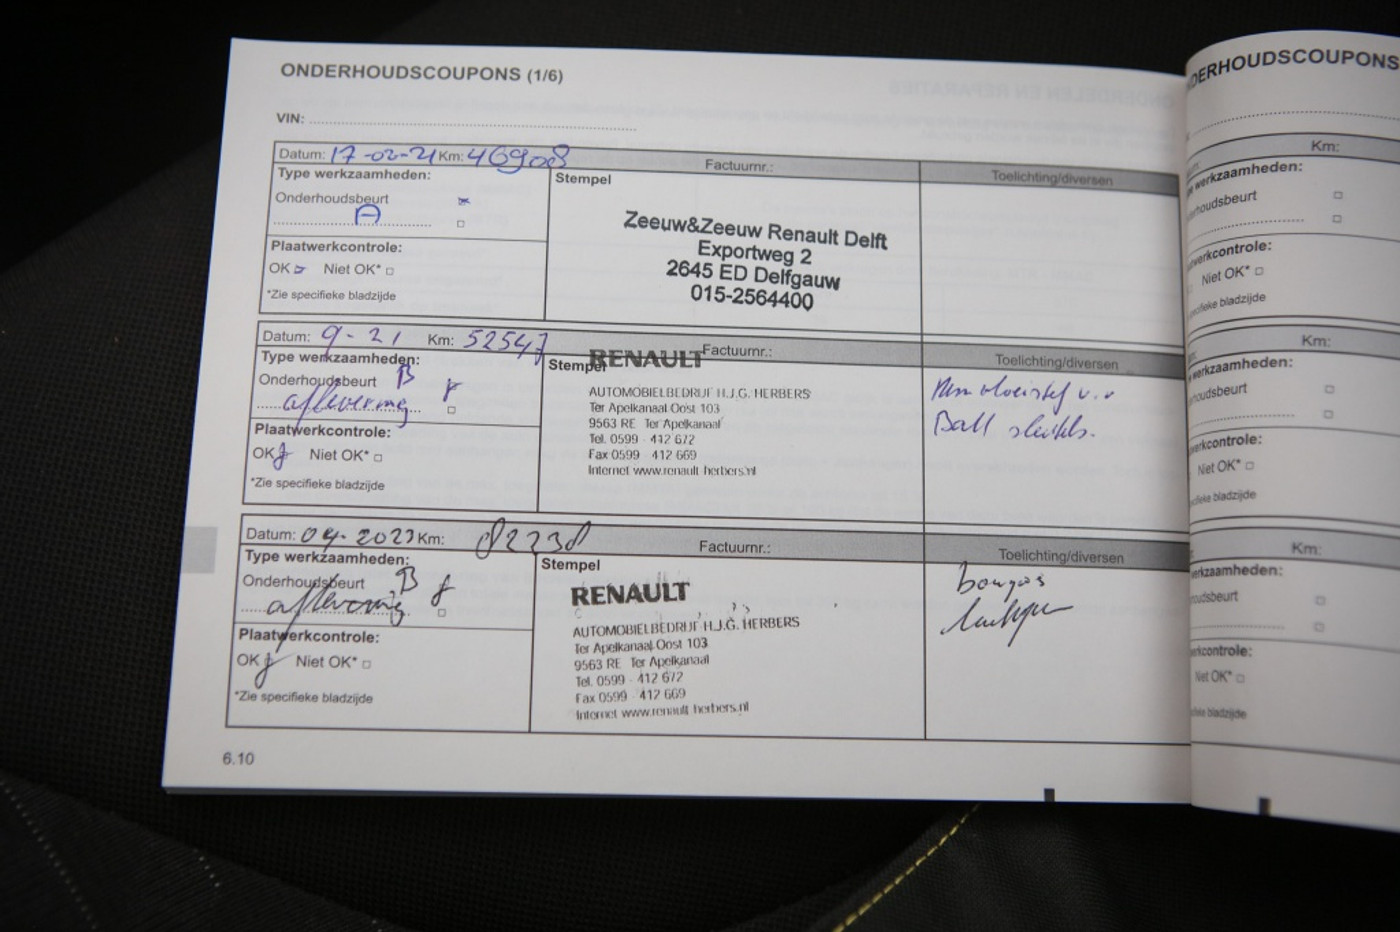 ONDERHOUDSCOUPONS (1/6)
VIN:
Datum: 17-02-21 Km: 46908 Factuurnr.: Toelichting/diversen
Type werkzaamheden: Stempel
Onderhoudsbeurt
A
Plaatwerkcontrole:
OK Niet OK* □
*Zie specifieke bladzijde
Zeeuw&Zeeuw Renault Delft
Exportweg 2
2645 ED Delfgauw
015-2564400
Datum: 9-21 Km: 52547 Factuurnr.: Toelichting/diversen
Type werkzaamheden: Stempel
Onderhoudsbeurt B
aflevering
Plaatwerkcontrole:
OK Niet OK* □
*Zie specifieke bladzijde
RENAULT
AUTOMOBIELBEDRIJF H.J.G. HERBERS
Ter Apelkanaal Oost 103
9563 RE Ter Apelkanaal
Tel. 0599 - 412 672
Fax 0599 - 412 669
Internet www.renault-herbers.nl
Remvloeistof v.v
Datum: 04-2023 Km: 82238 Factuurnr.: Toelichting/diversen
Type werkzaamheden: Stempel
Onderhoudsbeurt B
aflevering
Plaatwerkcontrole:
OK Niet OK* □
*Zie specifieke bladzijde
RENAULT
AUTOMOBIELBEDRIJF H.J.G. HERBERS
Ter Apelkanaal Oost 103
9563 RE Ter Apelkanaal
Tel. 0599 - 412 672
Fax 0599 - 412 669
Internet www.renault-herbers.nl
bougies
6.10
DERHOUDSCOUPONS
Km:
werkzaamheden:
houdsbeurt
werkcontrole:
Niet OK* □
specifieke bladzijde
Km:
werkzaamheden:
houdsbeurt
werkcontrole:
Niet OK* □
specifieke bladzijde
Km:
erkzaamheden:
houdsbeurt
erkcontrole:
Niet OK* □
specifieke bladzijde